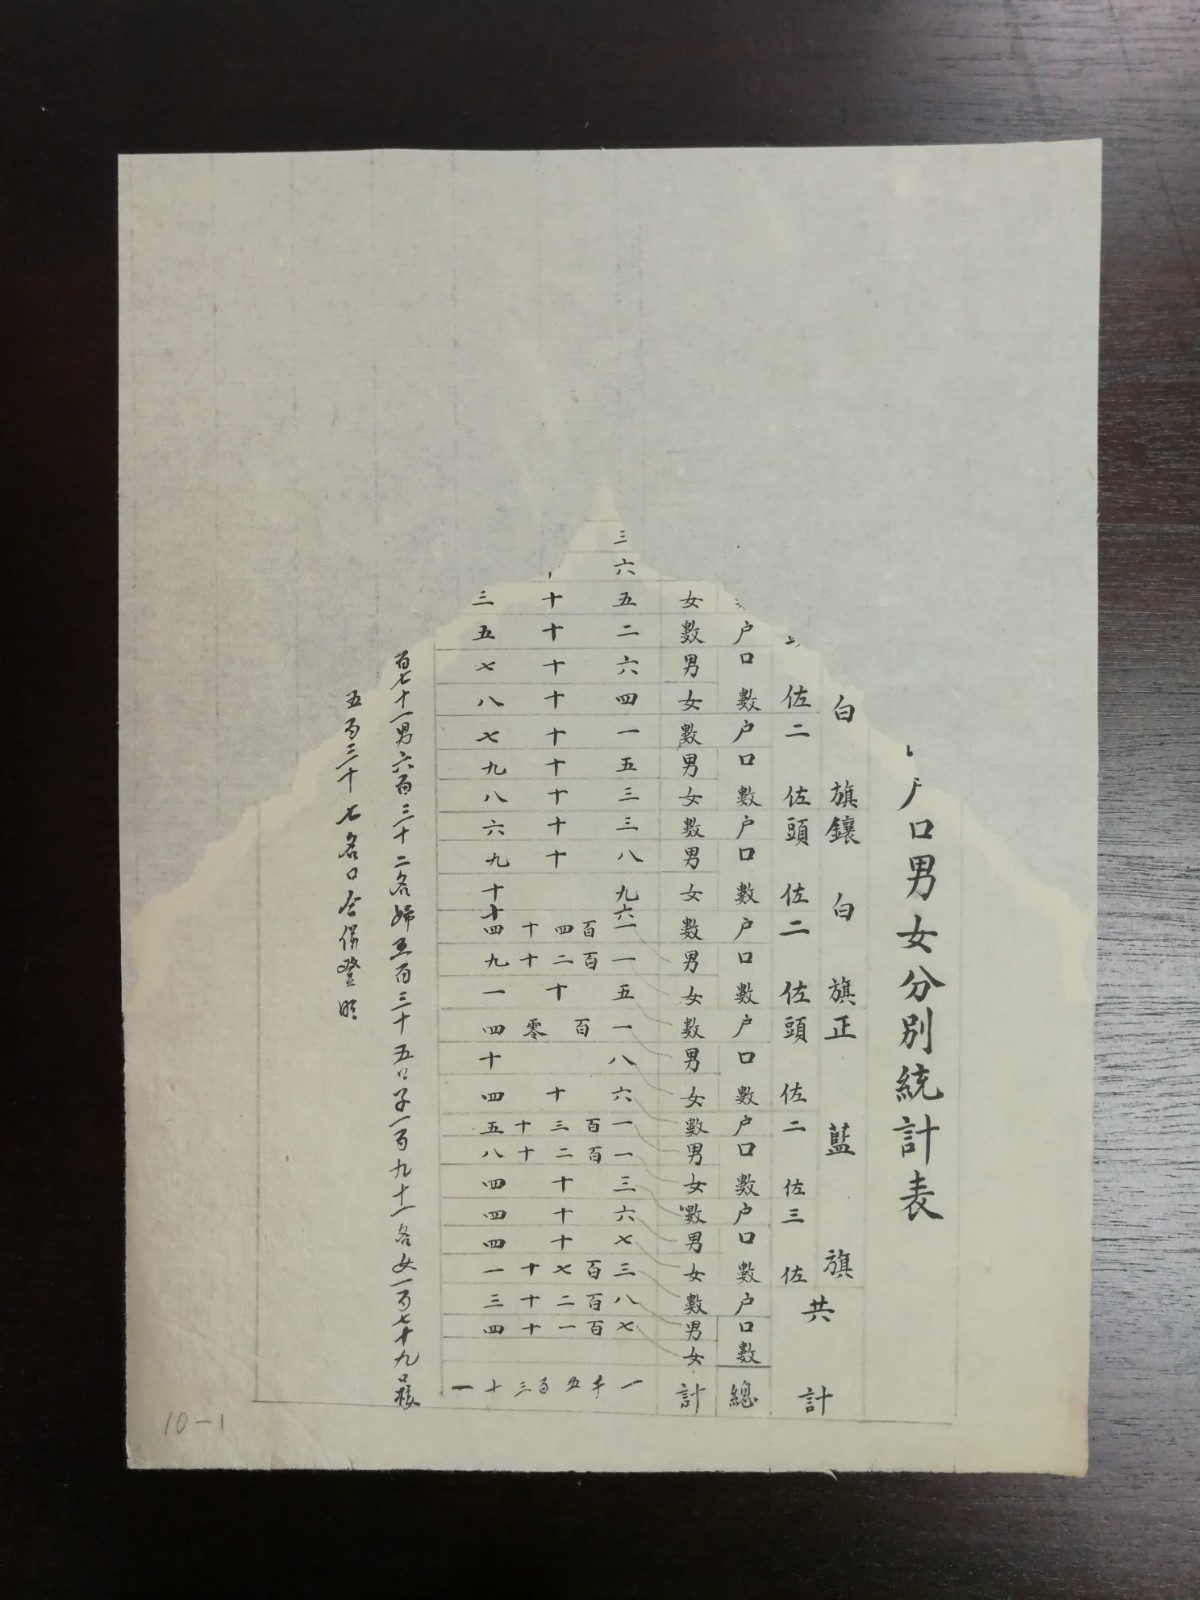 户口男女分別統計表
白旗鑲白旗正藍旗共計
佐二佐頭佐二佐頭佐二佐三佐
户口數户口數户口數户口數户口數户口數户口數户口數總
女數男女數男女數男女數男女數男女數男女數男女數男女計
三
六
五十三
二十五
六十七
四十八
一十七
五十九
三十八
三十六
八十九
九十
六十
一百四十四
一百二十九
五十一
一百零四
八十
六十四
一百三十五
一百二十八
三十四
六十四
七十四
三百七十一
八百二十三
七百一十四
一千五百三十一
百七十一男六百三十二名婦五百三十五口子一百九十一名女一百七十九口
五百三十七名口合併登明
10-1